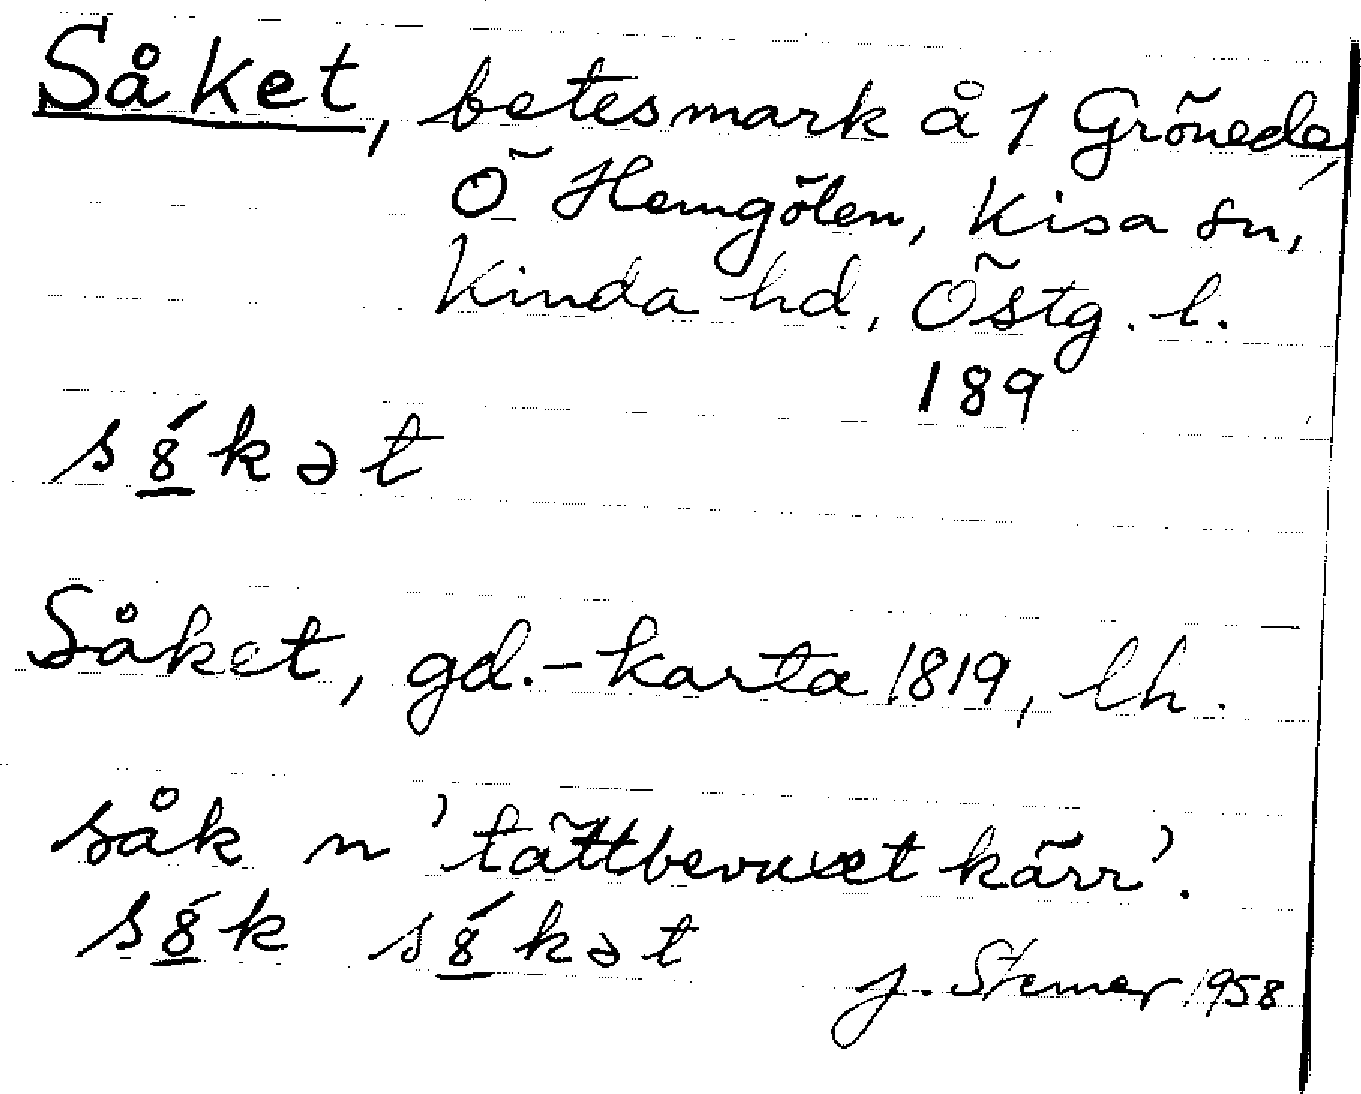 Såket, betesmark å 1 Gröneda,
Ö Hemgölen, Kisa sn,
Kinda hd, Östg. l.
189
s8́kət
Såket, gd.-karta 1819, lh.
såk n 'tättbevuxet kärr'.
s8́k s8́kət
J. Stemer 1958